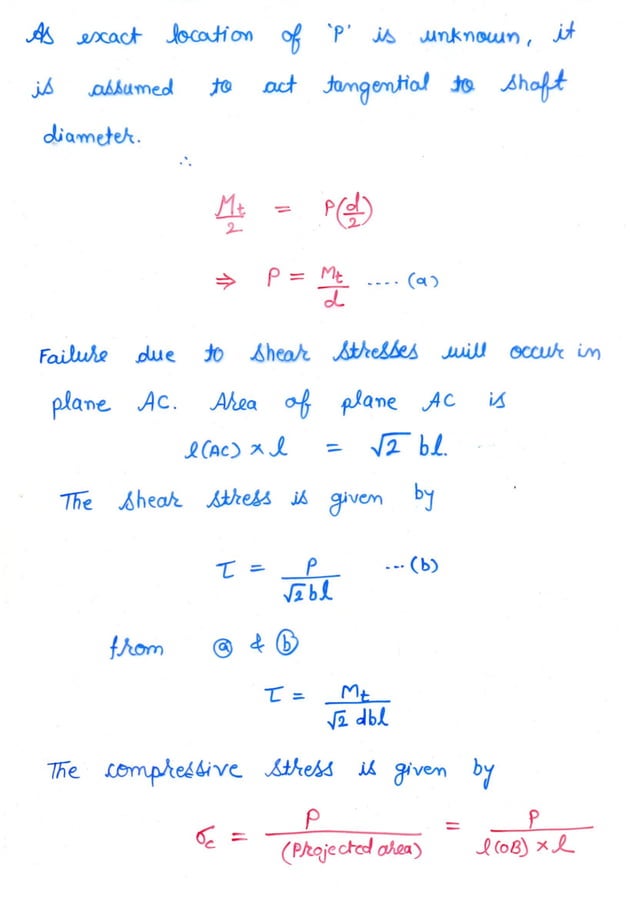 As exact location of 'P' is unknown, it
is assumed to act tangential to shaft
diameter.
∴
Mt/2 = P(d/2)
⇒ P = Mt/d .... (a)
Failure due to shear stresses will occur in
plane AC. Area of plane AC is
l(AC) × l = √2 bl.
The shear stress is given by
τ = P/√2bl ...(b)
from ⓐ & ⓑ
τ = Mt/√2 dbl
The compressive stress is given by
σc = P/(Projected area) = P/l(OB) × l